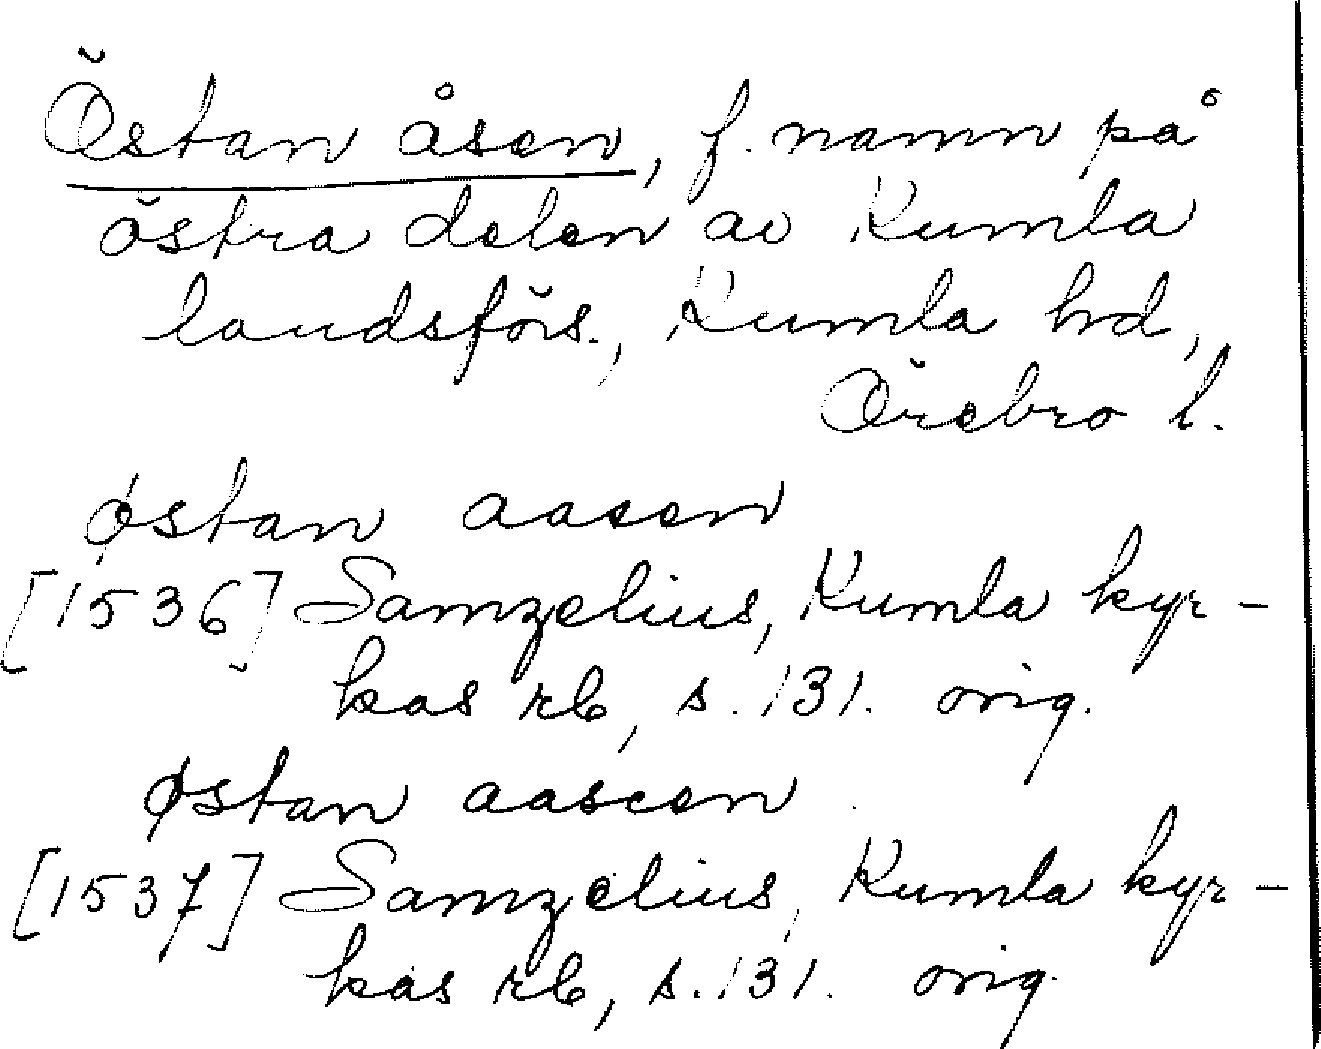 Östan åsen, f. namn på
östra delen av Kumla
landsförs., Kumla hd,
Örebro l.
østan aasen
[1536] Samzelius, Kumla kyr-
kas rb, s. 131. orig.
østan aaseen
[1537] Samzelius, Kumla kyr-
kas rb, s. 131. orig.